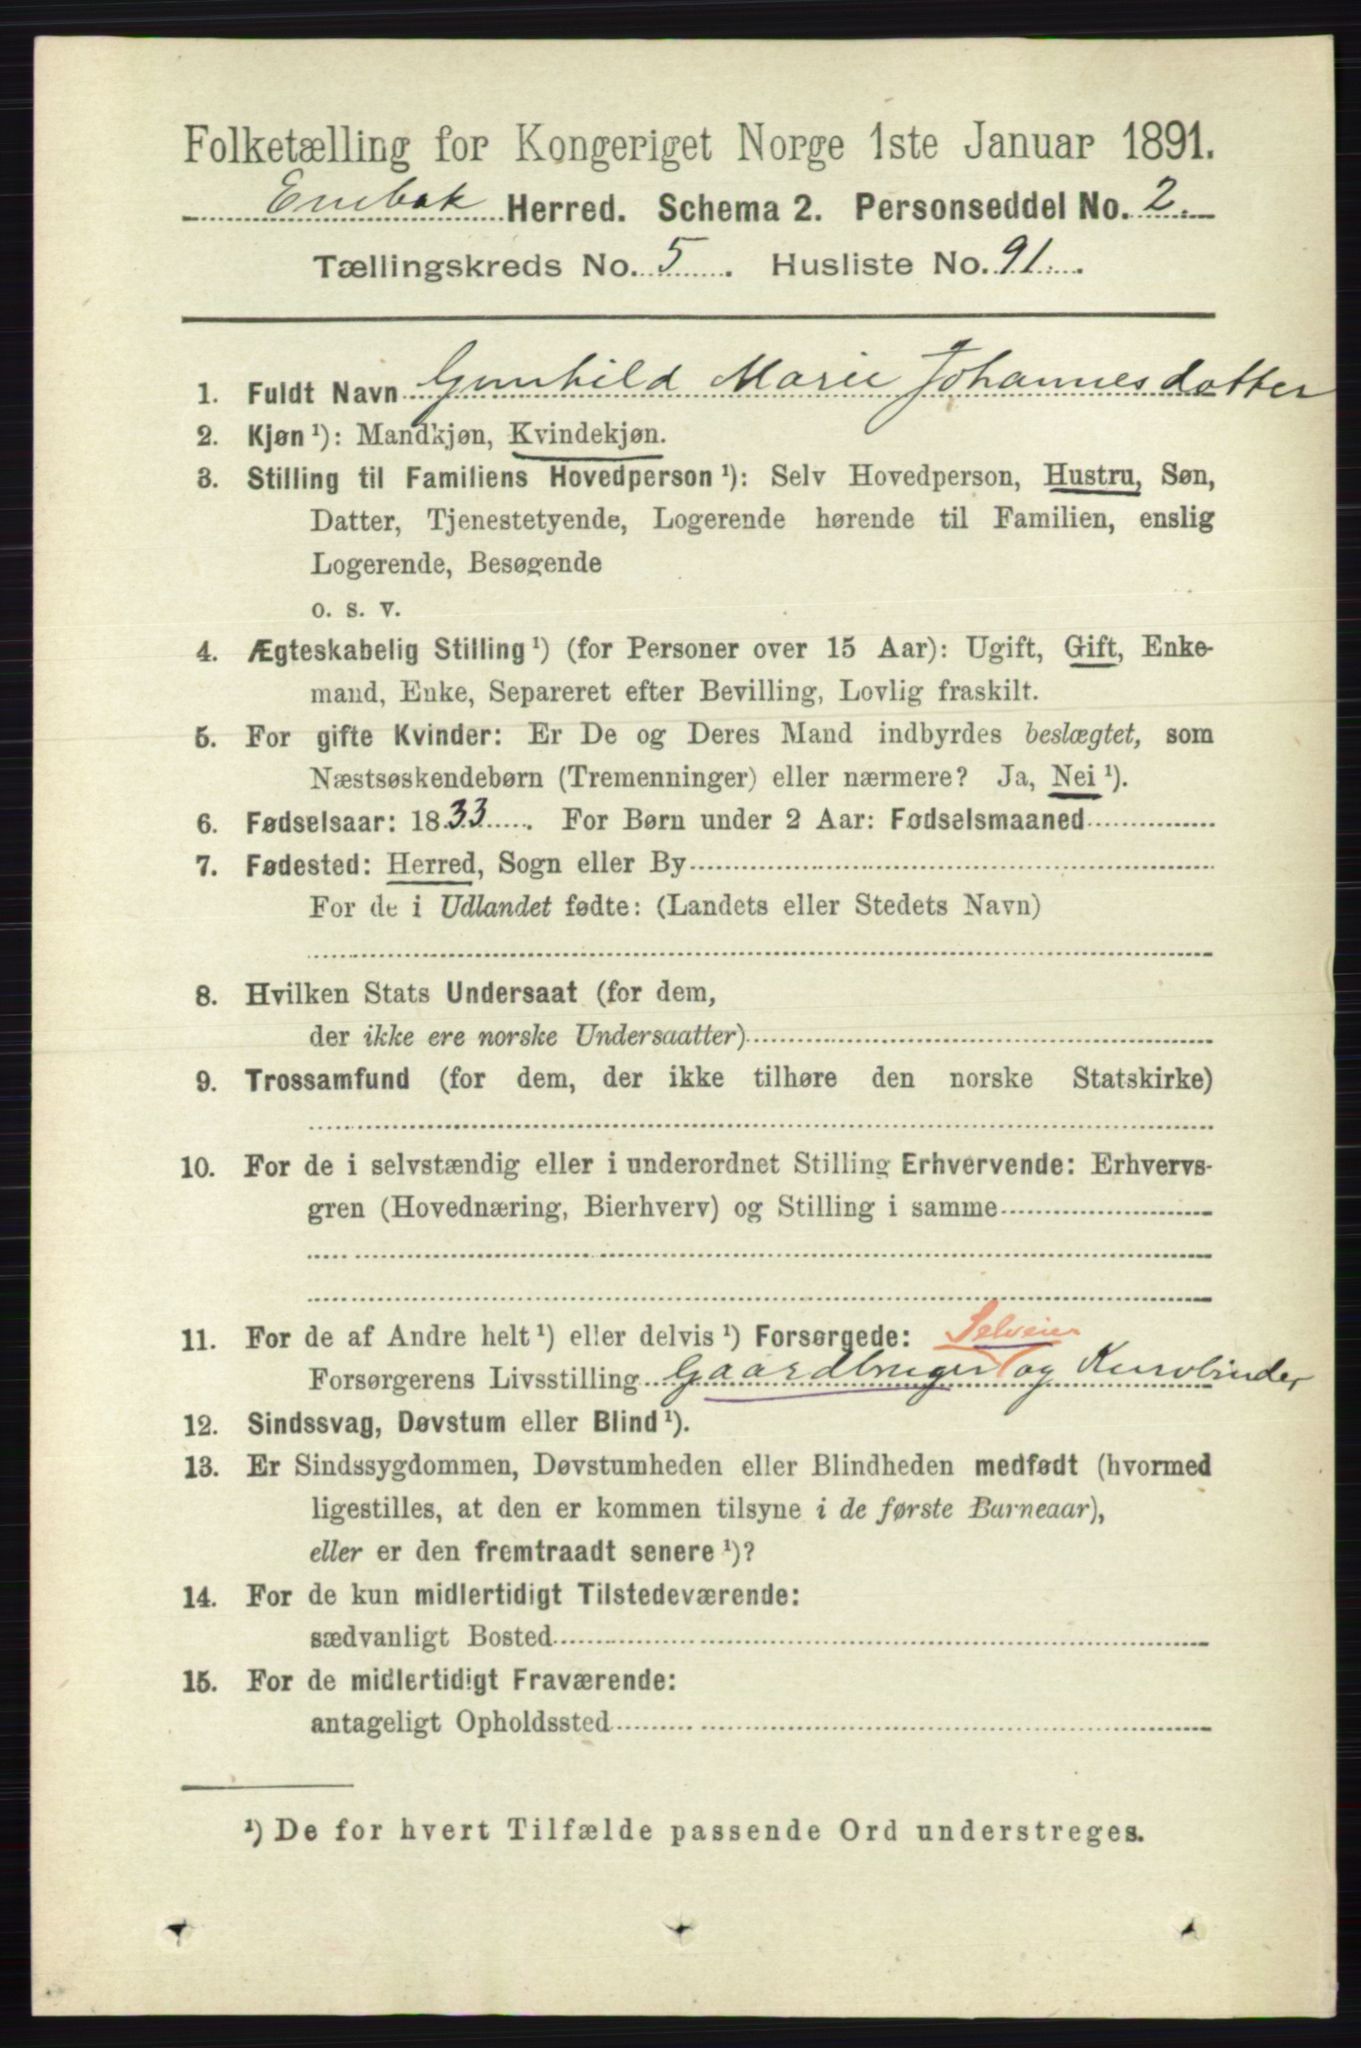 Folketælling for Kongeriget Norge 1ste Januar 1891.
Enebak Herred. Schema 2. Personseddel No. 2.
Tællingskreds No. 5. Husliste No. 91.
1. Fuldt Navn Gunhild Marie Johannesdatter
2. Kjøn ¹): Mandkjøn, Kvindekjøn.
3. Stilling til Familiens Hovedperson ¹): Selv Hovedperson, Hustru, Søn,
Datter, Tjenestetyende, Logerende hørende til Familien, enslig
Logerende, Besøgende
o. s. v.
4. Ægteskabelig Stilling ¹) (for Personer over 15 Aar): Ugift, Gift, Enke-
mand, Enke, Separeret efter Bevilling, Lovlig fraskilt.
5. For gifte Kvinder: Er De og Deres Mand indbyrdes beslægtet, som
Næstsøskendebørn (Tremenninger) eller nærmere? Ja, Nei ¹).
6. Fødselsaar: 1833. For Børn under 2 Aar: Fødselsmaaned
7. Fødested: Herred, Sogn eller By
For de i Udlandet fødte: (Landets eller Stedets Navn)
8. Hvilken Stats Undersaat (for dem,
der ikke ere norske Undersaatter)
9. Trossamfund (for dem, der ikke tilhøre den norske Statskirke)
10. For de i selvstændig eller i underordnet Stilling Erhvervende: Erhvervs-
gren (Hovednæring, Bierhverv) og Stilling i samme
11. For de af Andre helt ¹) eller delvis ¹) Forsørgede: Selveier
Forsørgerens Livsstilling Gaardbruger og Kurvbinder
12. Sindssvag, Døvstum eller Blind ¹).
13. Er Sindssygdommen, Døvstumheden eller Blindheden medfødt (hvormed
ligestilles, at den er kommen tilsyne i de første Barneaar),
eller er den fremtraadt senere ¹)?
14. For de kun midlertidigt Tilstedeværende:
sædvanligt Bosted
15. For de midlertidigt Fraværende:
antageligt Opholdssted
¹) De for hvert Tilfælde passende Ord understreges.